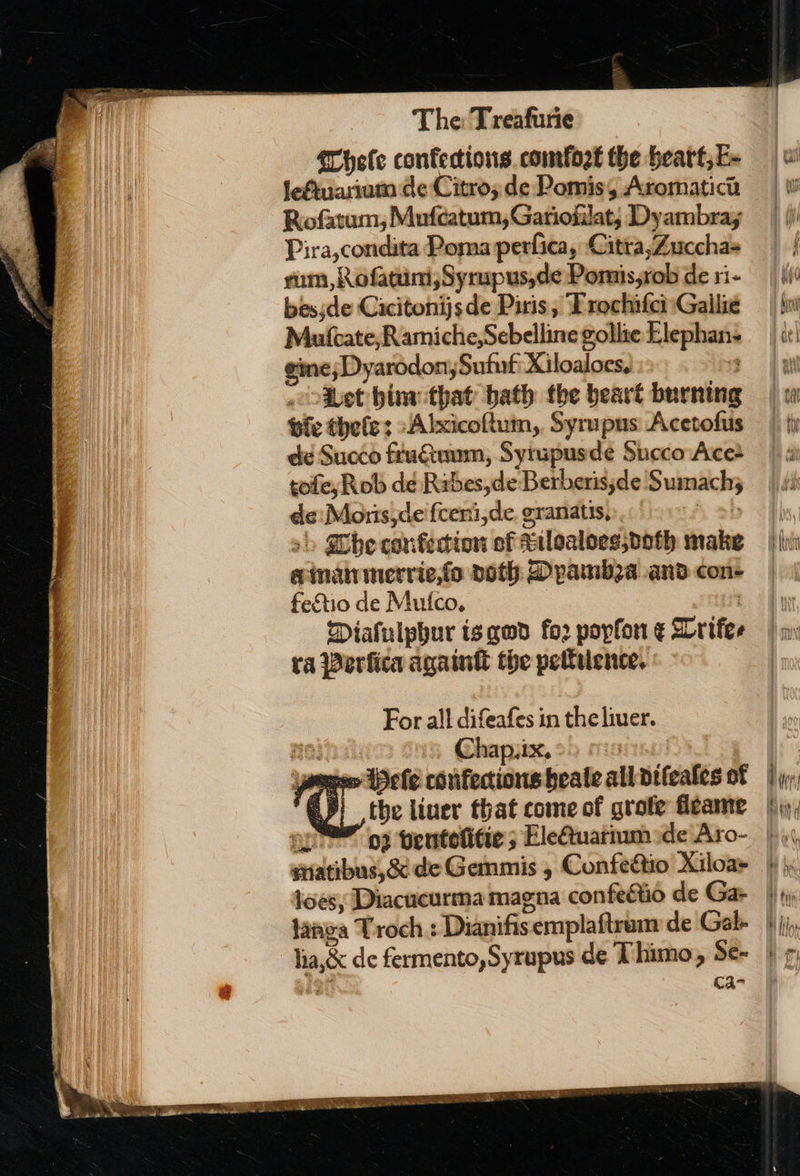 The Treasurie
These confections comfort the heart, E-
lectuarium de Citro, de Pomis, Aromaticū
Rosatum, Muscatum, Gariofilat, Dyambra,
Pira, condita Poma persica, Citra, Zuccha-
rum, Rosatum, Syrupus, de Pomis, rob de ri-
bes, de Cicitonijs de Piris, Trochisci Gallie
Muscate, Ramiche, Sebelline gollie Elephan-
gine, Dyarodon, Sufuf Xiloaloes,
Let him that hath the heart burning
vse these: Alxicostum, Syrupus Acetosus
de Succo fructuum, Syrupus de Succo Ace-
tose, Rob de Ribes, de Berberis, de Sumach,
de Moris, de sceni, de granatis,
The confection of Xiloaloes, doth make
a man merrie, so doth Dyambra and con-
fectio de Musco.
Diasulphur is good for poyson & Trife-
ra Persica against the pestilence.
For all diseases in the liuer.
Chap. ix.
THese confections heale all diseases of
the liuer that come of grose fleame
or ventositie; Electuarium de Aro-
matibus, & de Gemmis, Confectio Xiloa-
loes, Diacucurma magna confectio de Ga-
langa Troch: Dianisis emplastrum de Gal-
lia, & de fermento, Syrupus de Thimo, Se-
ca-